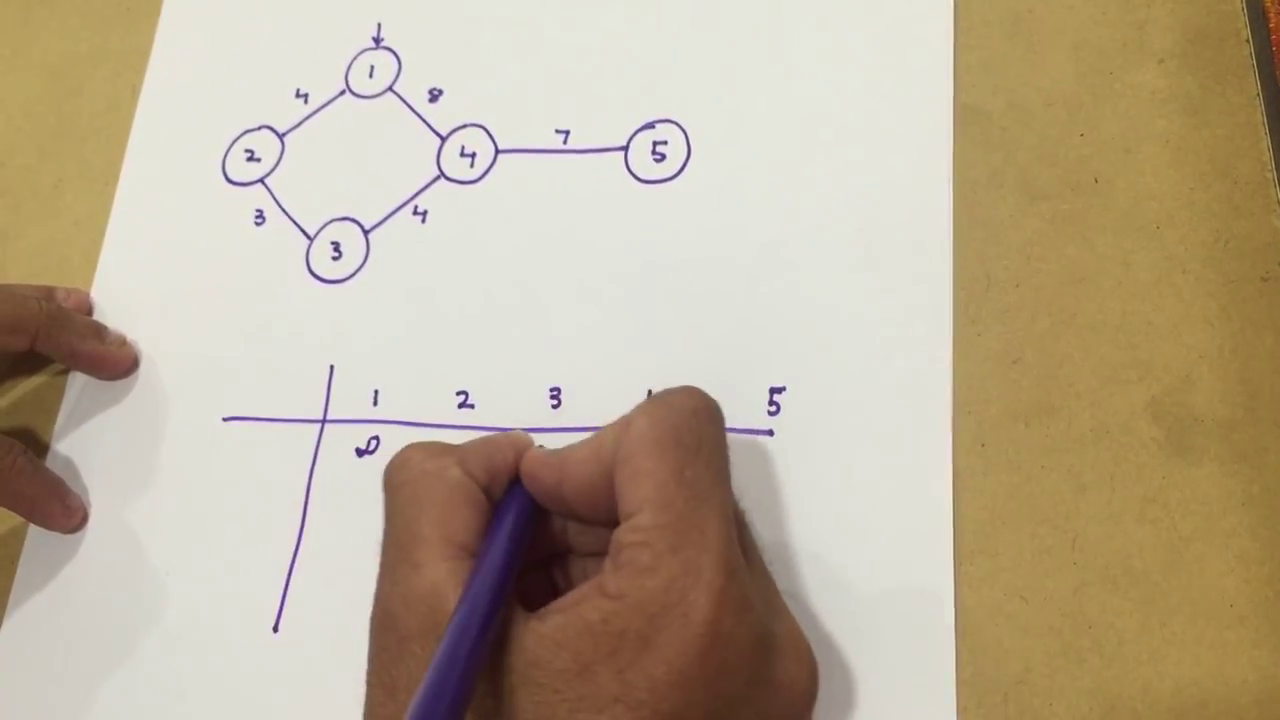 1
4 8
2 4 7 5
3 4
3
1 2 3 5